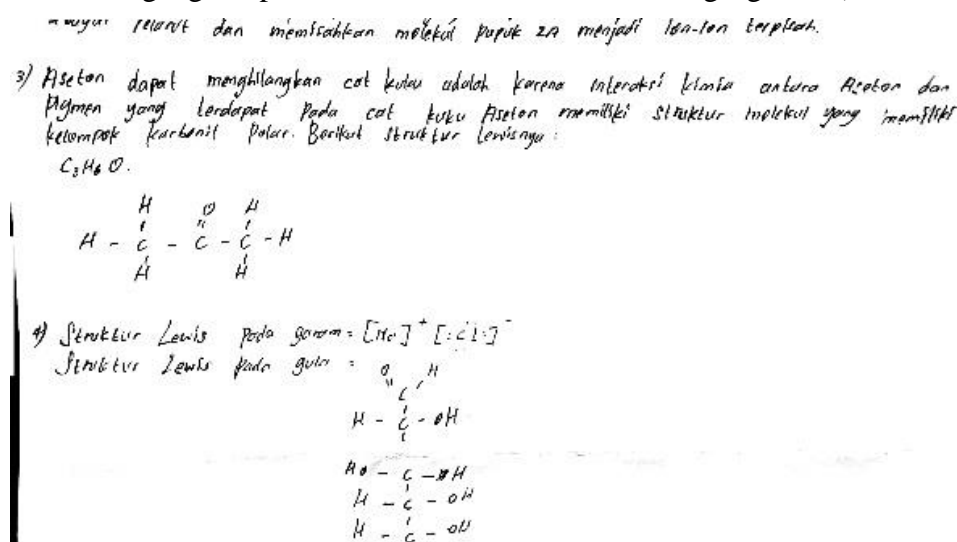 pelarut dan memisahkan molekul pupuk ZA menjadi Ion-Ion terpisah.
3) Aseton dapat menghilangkan cat kuku adalah karena interaksi kimia antara Aceton dan
Pigmen yang terdapat Pada cat kuku Aseton memiliki struktur molekul yang memiliki
kelompok karbonil Polar. Berikut struktur Lewisnya :
C3H6O.
H O H
H - C - C - C - H
H H
4) Struktur Lewis pada garam = [Na]+ [:Cl:]-
Struktur Lewis pada gula =
O H
C
H - C - OH
HO - C - OH
H - C - OH
H - C - OH